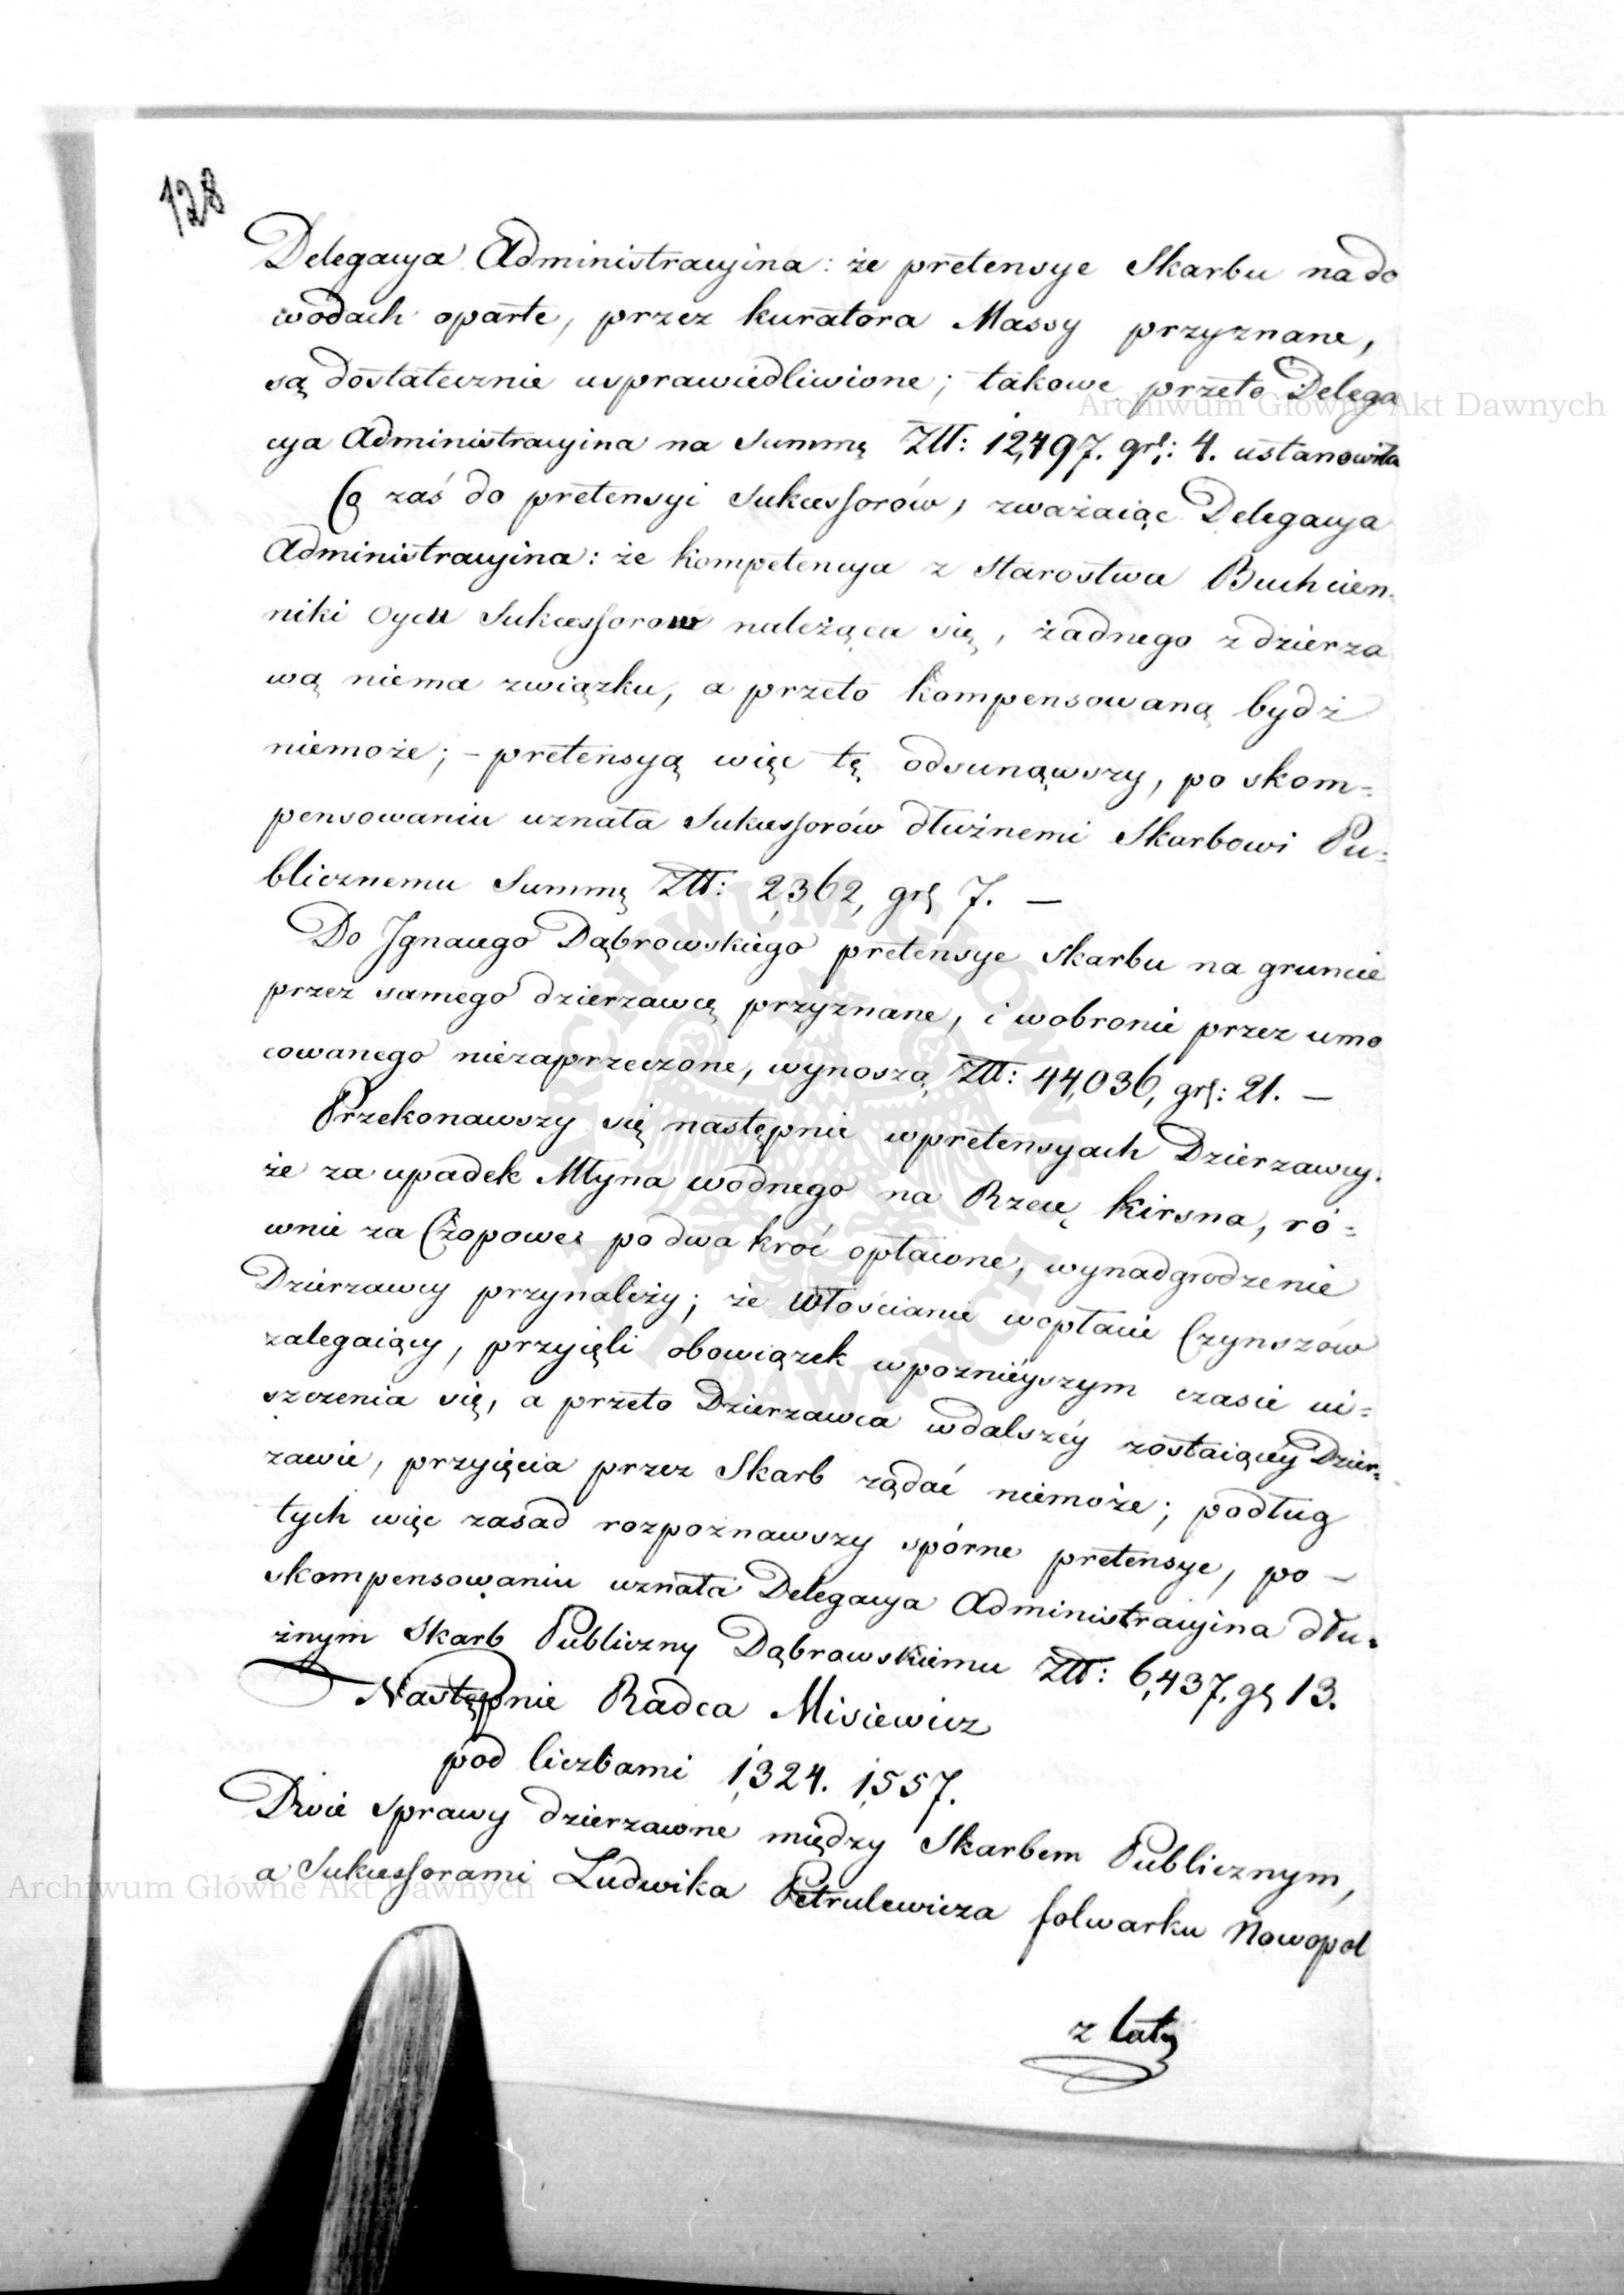 128
Delegacya Administracyina: że pretensye Skarbu na do
wodach oparte, przez kuratora Massy przyznane,
są dostatecznie usprawiedliwione; takowe przeto Delega
cya Administracyina na Summę Złł: 12,497. gr: 4. ustanowiła
Co zaś do pretensyi Sukcessorów, zważaiąc Delegacya
Administracyina: że kompetencya z Starostwa Buchcien-
niki Oycu Sukcessorow należąca się, żadnego z dzierza
wą niema związku, a przeto kompensowaną bydź
niemoże; - pretensyą więc tę odsunąwszy, po skom=
pensowaniu uznała Sukcessorów dłużnemi Skarbowi Pu=
blicznemu Summę Złł: 2,362, gr 7. —
Do Jgnacego Dąbrowskiego pretensye Skarbu na gruncie
przez samego dzierzawcę przyznane, i wobronie przez umo
cowanego niezaprzeczone, wynoszą Złł: 44,036, gr: 21. —
Przekonawszy się następnie wpretensyach Dzierzawcy.
że za upadek Młyna wodnego na Rzece Kirsna, ró=
wnie za Czopowe podwa kroć opłacone, wynadgrodzenie
Dzierzawcy przynależy; że Włościanie wopłacie Czynszów
zalegaiący, przyięli obowiązek wpoźnieyszym czasie ui=
szczenia się, a przeto Dzierzawca wdalszéy zostaiącéy Dzier=
zawie, przyięcia przez Skarb ządać niemoże; podług
tych więc zasad rozpoznawszy spórne pretensye, po —
skompensowaniu uznała Delegacya Administracyina dłu=
żnym Skarb Publiczny Dąbrawskiemu Złł: 6,437, g 13.
Następnie Radca Misiewicz
pod liczbami 1,324. 1,557.
Dwie sprawy dzierzawne między Skarbem Publicznym,
a Sukcessorami Ludwika Petrulewicza folwarku Nowopol
z laty
Archiwum Główne Akt Dawnych
Archiwum Główne Akt Dawnych
ARCHIWUM GŁÓWNE AKT DAWNYCH